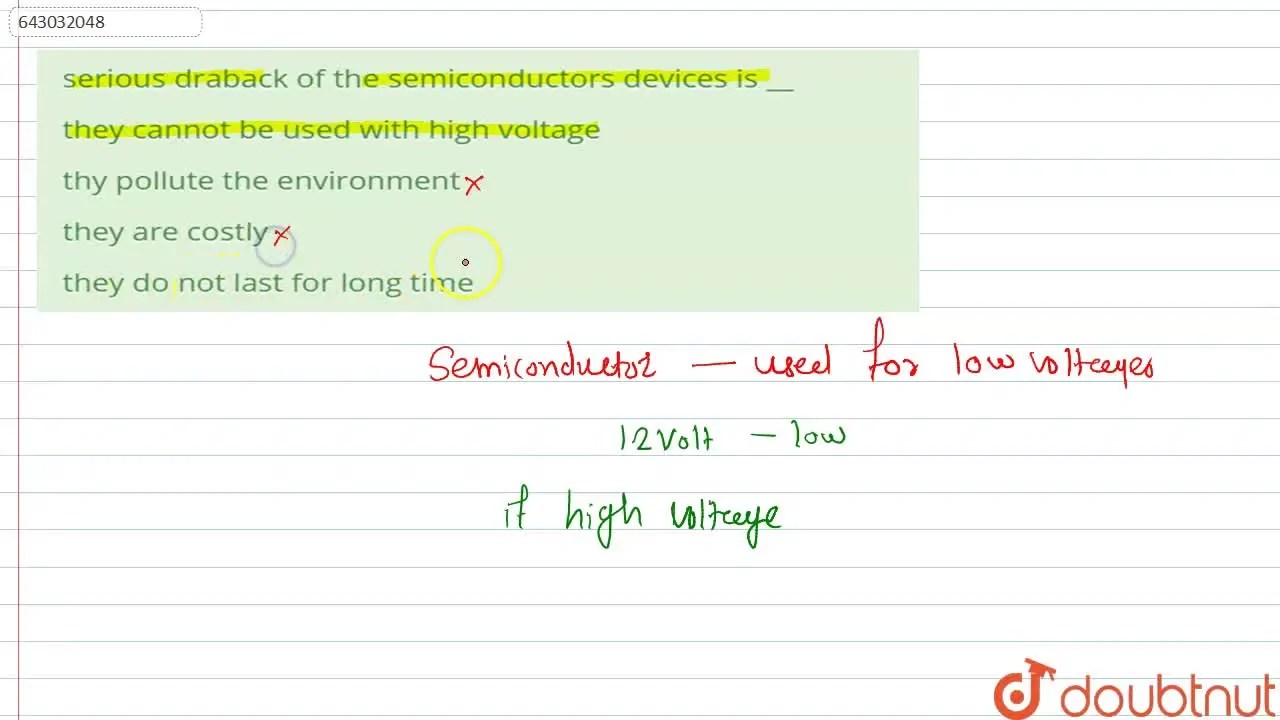 643032048
serious draback of the semiconductors devices is __
they cannot be used with high voltage
thy pollute the environment x
they are costly x
they do not last for long time
Semiconductor — used for low voltages
12 Volt — low
if high voltage
doubtnut